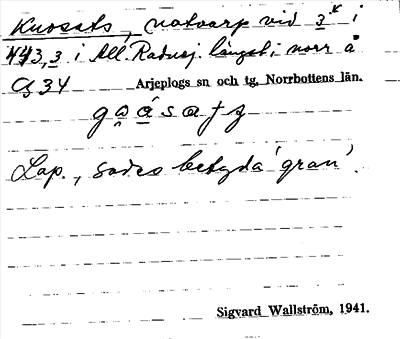 Kuossts, notvarp vid 3* i
443,3 i All. Radnsj. längst i norr å
C34 Arjeplogs sn och tg, Norrbottens län.
Lap., sades betyda 'gran'.
Sigvard Wallström, 1941.